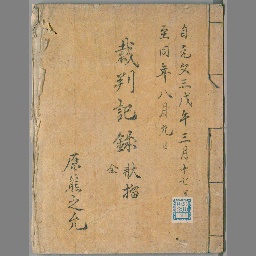 自元文三戊年三月十七日
至同年八月九日
裁判記録 状揃
全
原熊之允